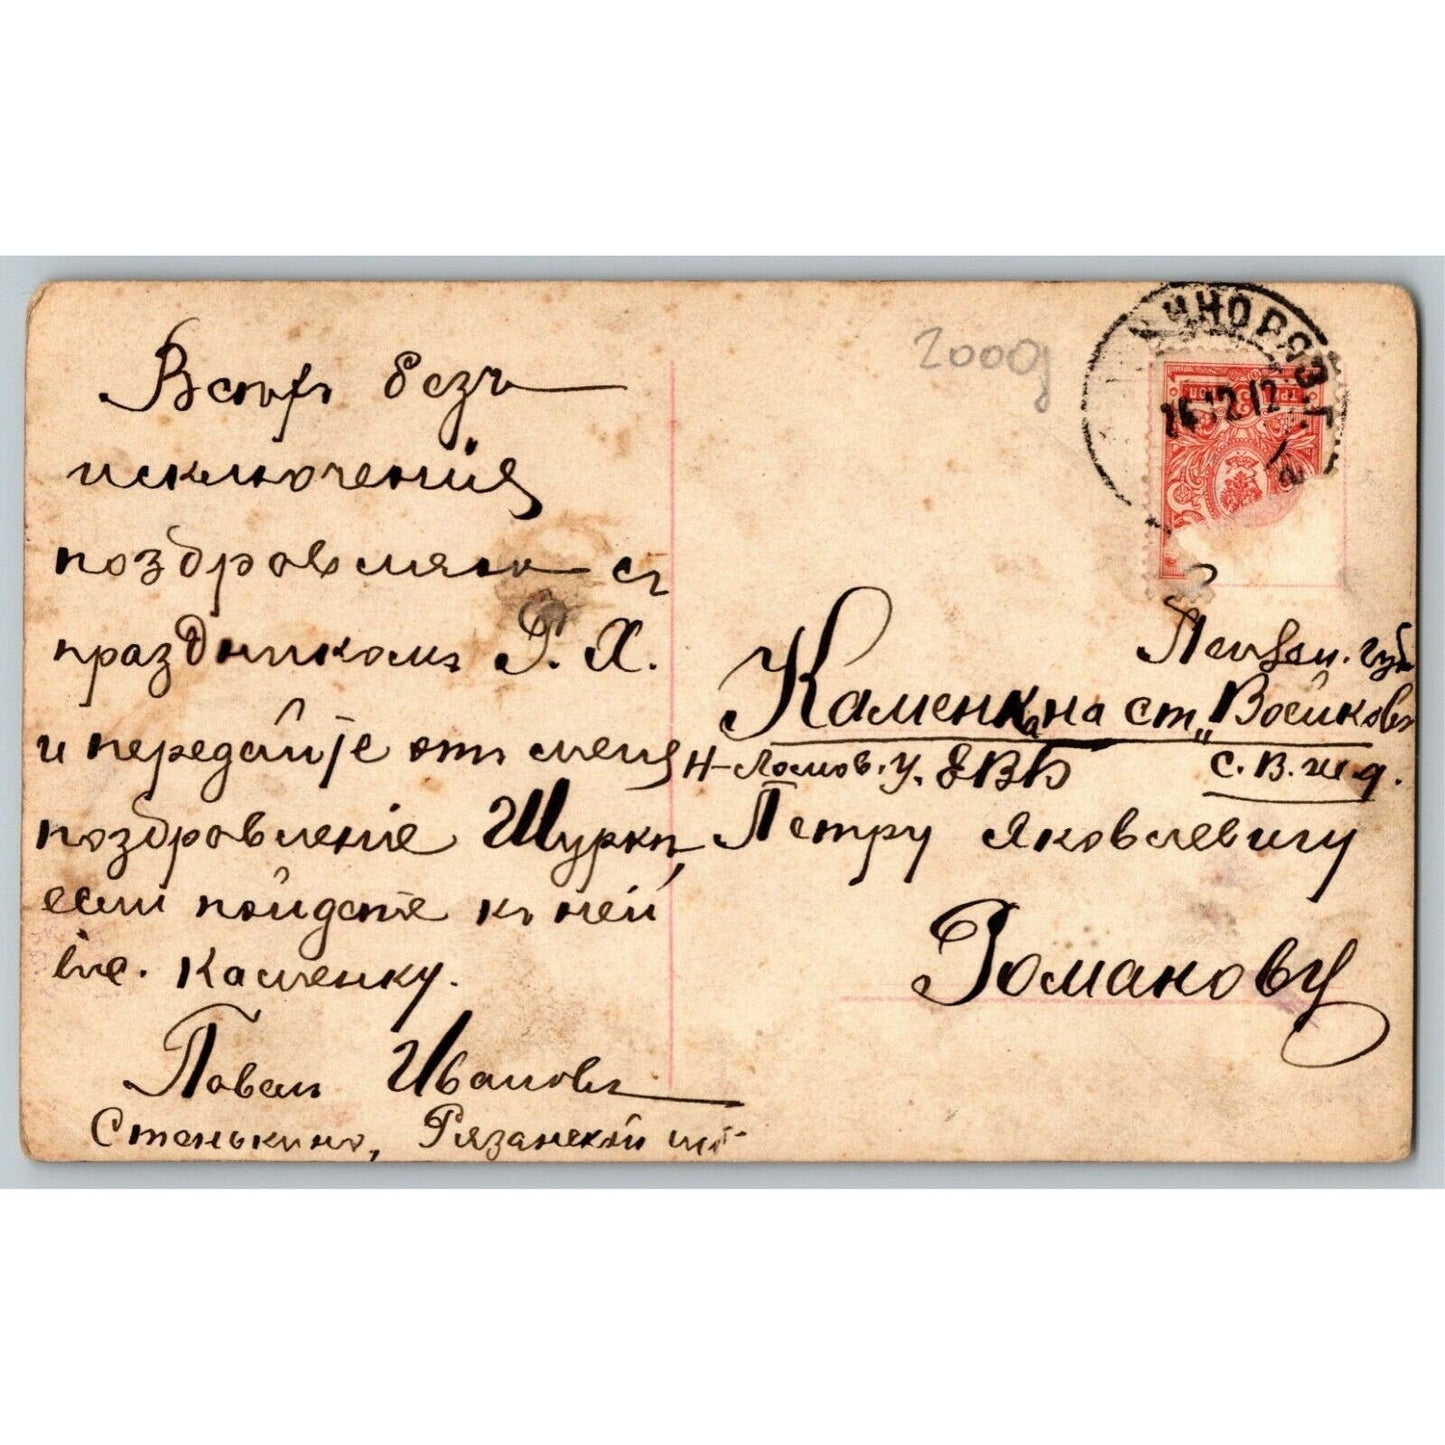 Всѣхъ безъ
исключенія
поздровляю съ
праздникомъ Р. Х.
и передайте отъ меня
поздровленіе Шуркѣ,
если пойдете къ ней
въ с. Каменку.
Павелъ Ивановъ
Стенькино, Рязанской
2000
14.12.12
Пензен. губ.
Каменка на ст. „Воейковъ
Н-Ломов. у. С.В.ж.д.
Петру Яковлевичу
Романову